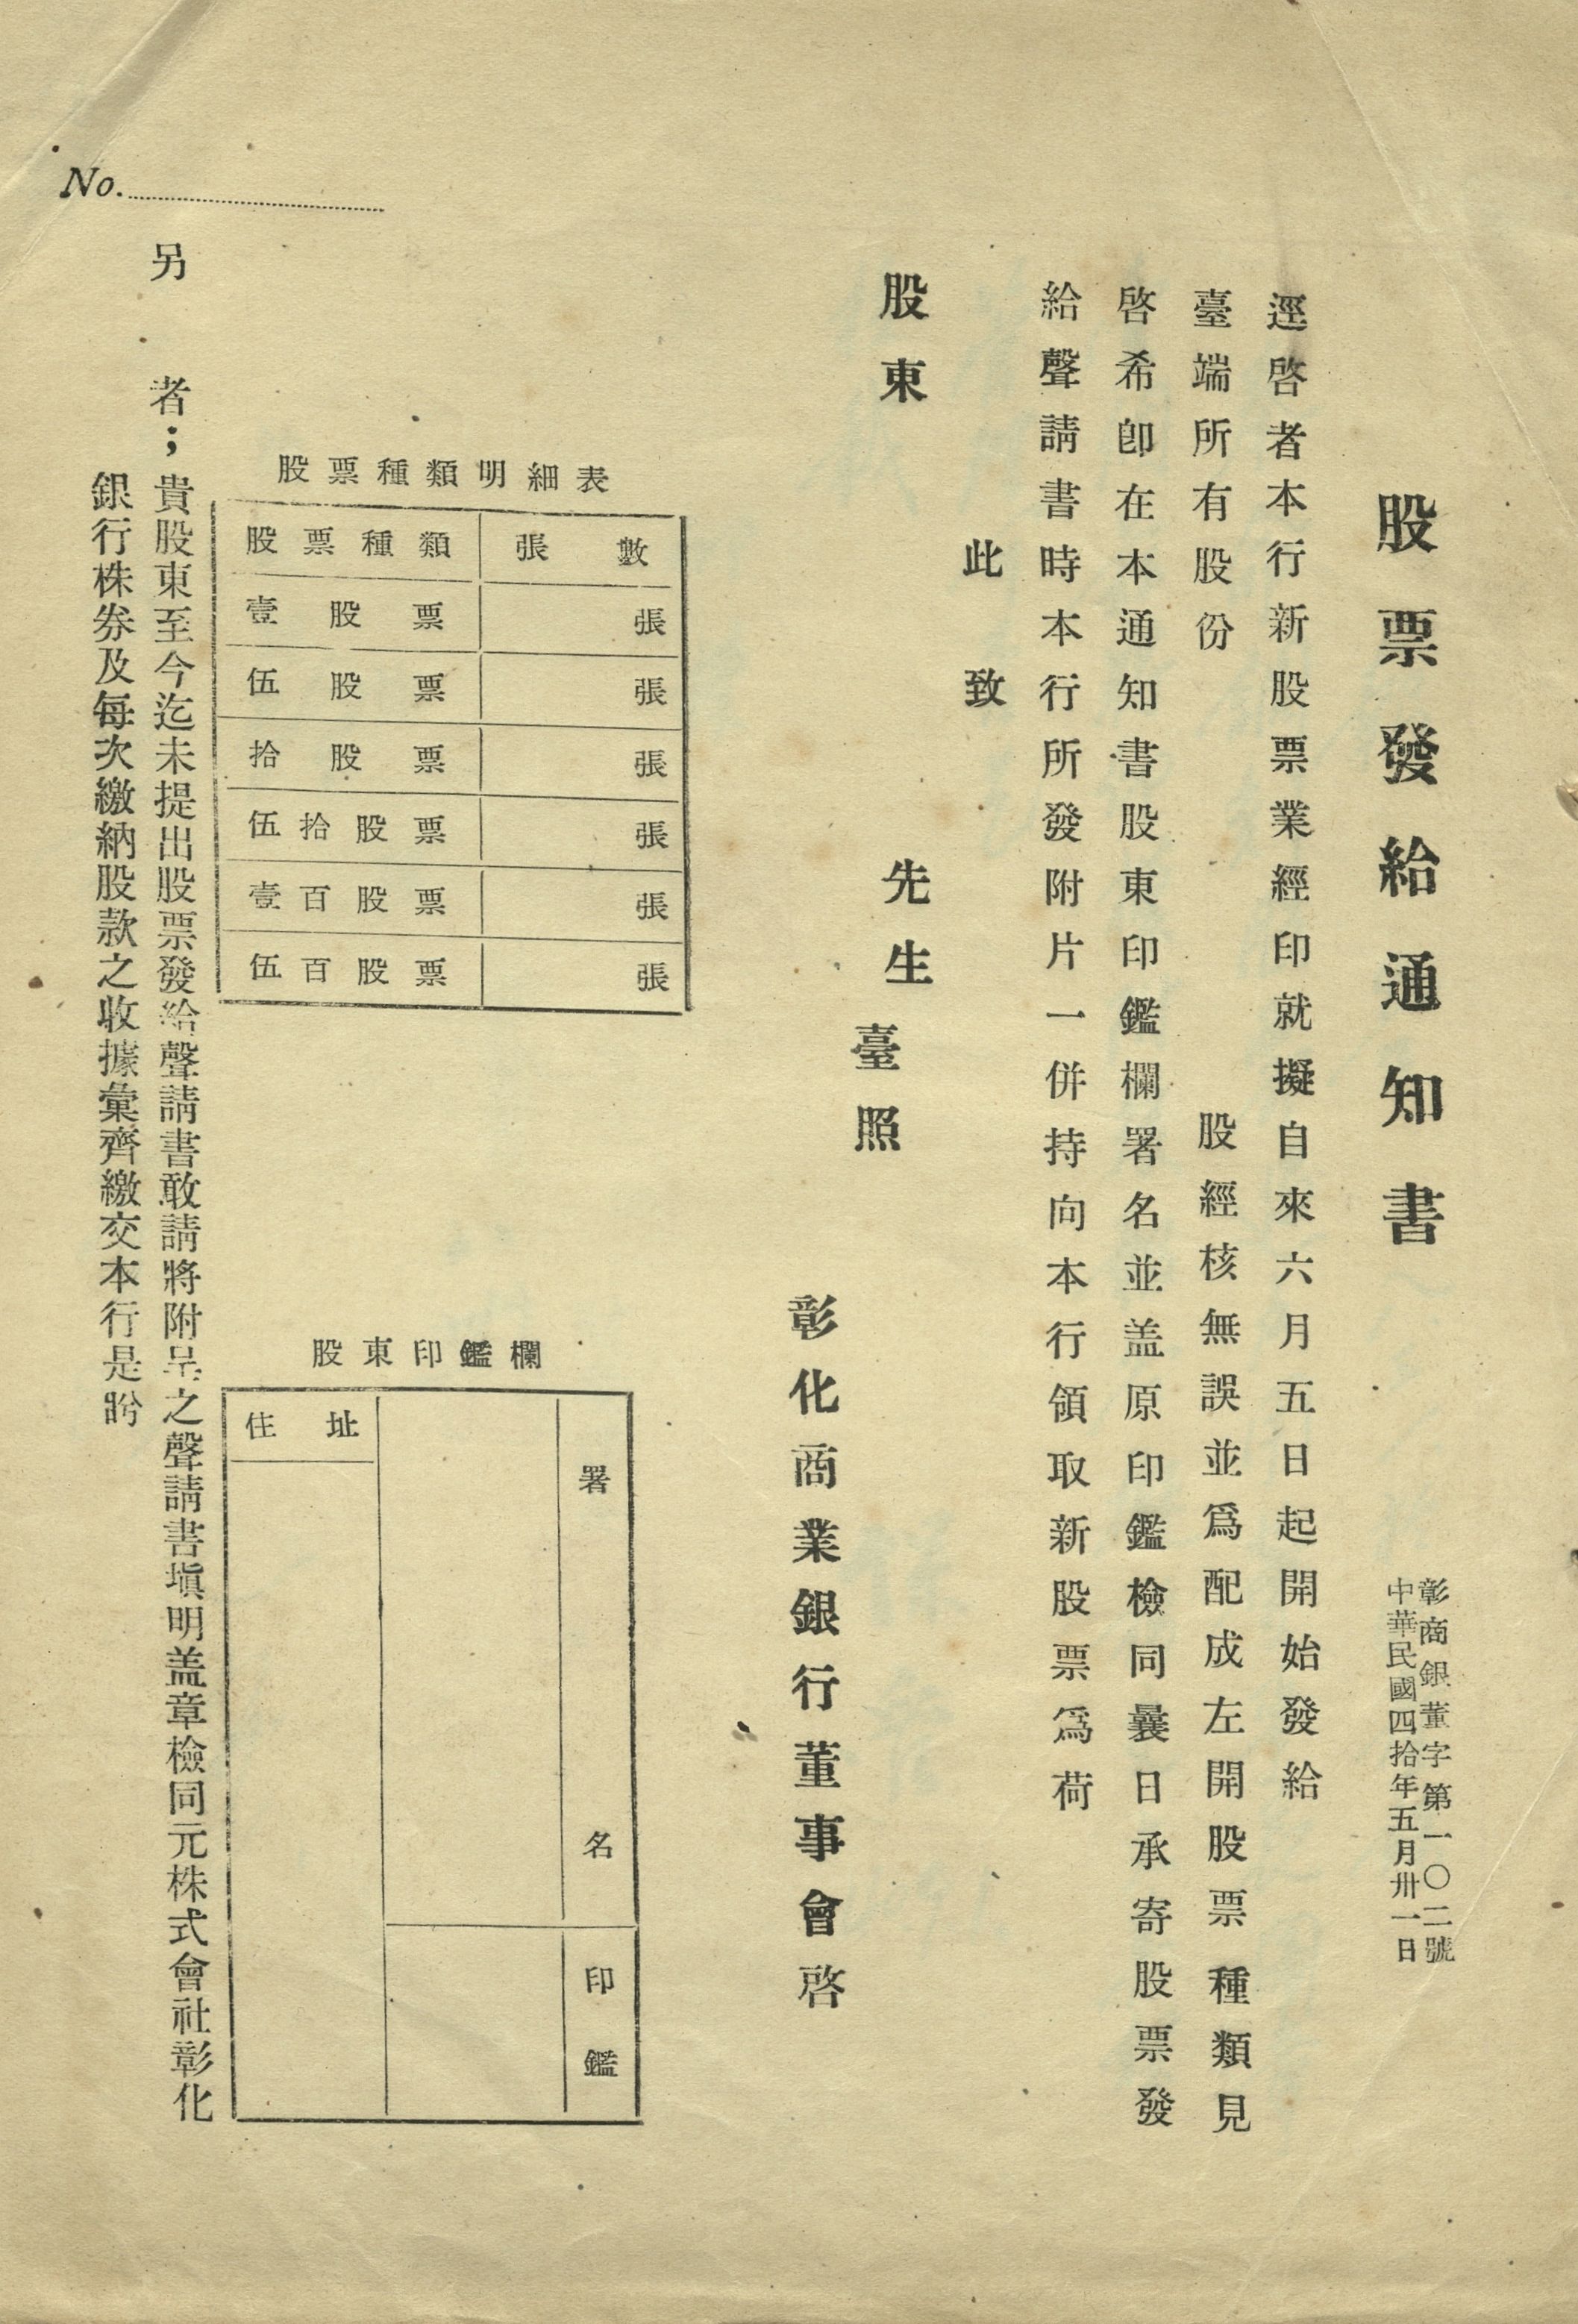 股票發給通知書
彰商銀董字第一〇二號
中華民國四拾年五月卅一日
逕啓者本行新股票業經印就擬自來六月五日起開始發給
臺端所有股份　　　股經核無誤並爲配成左開股票種類見
啓希卽在本通知書股東印鑑欄署名並盖原印鑑檢同曩日承寄股票發
給聲請書時本行所發附片一併持向本行領取新股票爲荷
此致
股東　　　先生
臺照
彰化商業銀行董事會啓
股票種類明細表
股票種類　張數
壹股票　張
伍股票　張
拾股票　張
伍拾股票　張
壹百股票　張
伍百股票　張
股東印鑑欄
署名　印鑑
住址
No.
另者；貴股東至今迄未提出股票發給聲請書敢請將附呈之聲請書塡明盖章檢同元株式會社彰化
銀行株券及每次繳納股款之收據彙齊繳交本行是盼